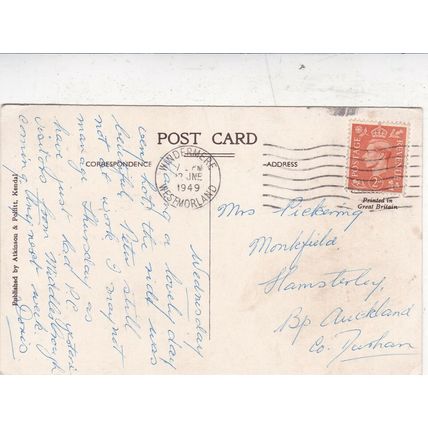 POST CARD
CORRESPONDENCE
ADDRESS
WINDERMERE
PM
JNE
1949
WESTMORLAND
POSTAGE
REVENUE
2D
Printed in
Great Britain
Published by Atkinson & Pollitt, Kendal
Wednesday
Having a lovely day
very hot. the ride was
beautiful. Peter still
not at work I may not
manage Thursday as
have just had P.C.
visitors from Middlesbrough
coming, next week
Doris
Mrs Pickering
Monkfield
Hamsterley,
Bp Auckland
Co. Durham